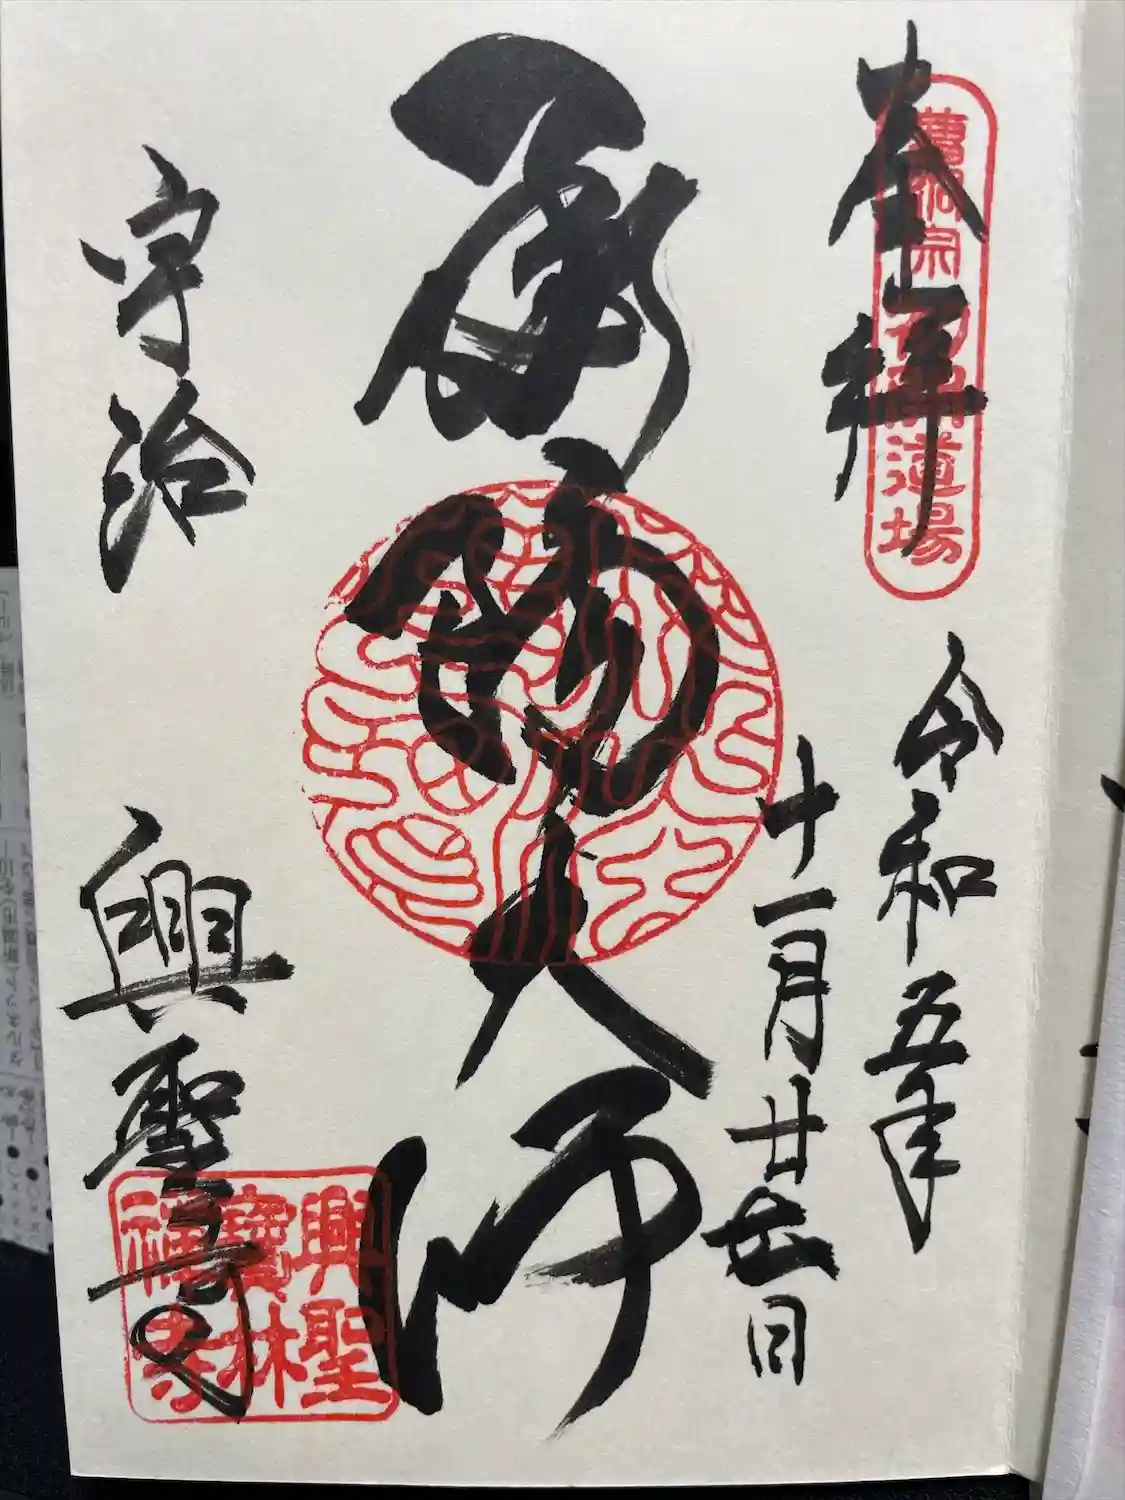 奉拝
曹洞宗初開道場
令和五年
十一月廿 日
承陽大師
宇治 興聖寺
興聖
寶林
禪寺